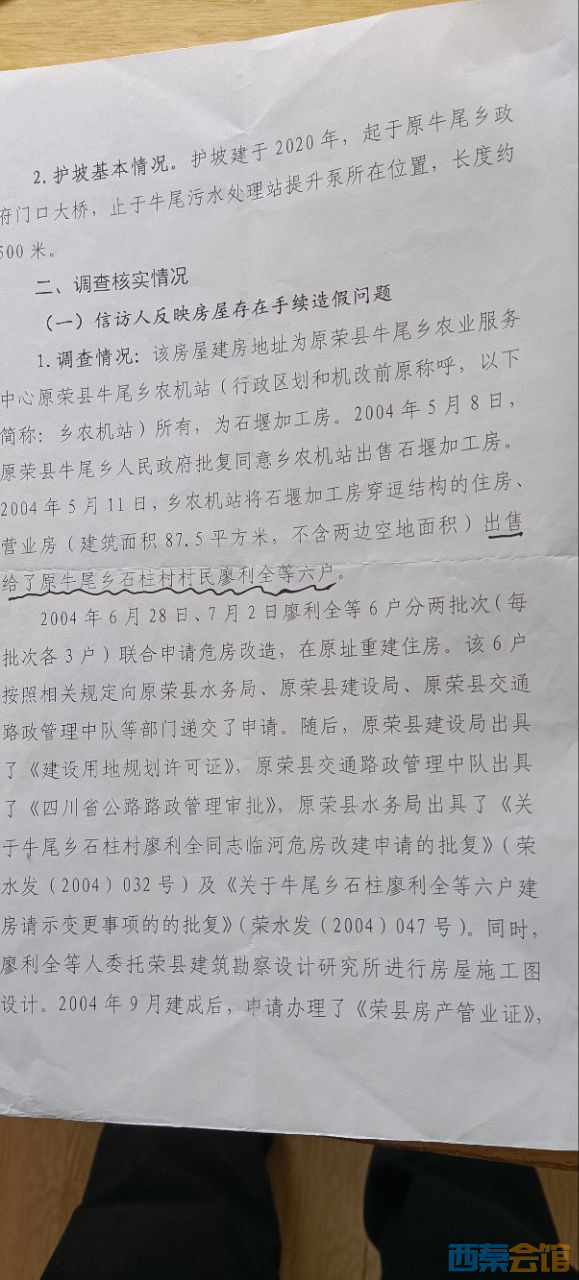 2.护坡基本情况。护坡建于2020年，起于原牛尾乡政
府门口大桥，止于牛尾污水处理站提升泵所在位置，长度约
500米。
二、调查核实情况
（一）信访人反映房屋存在手续造假问题
1.调查情况：该房屋建房地址为原荣县牛尾乡农业服务
中心原荣县牛尾乡农机站（行政区划和机改前原称呼，以下
简称：乡农机站）所有，为石堰加工房。2004年5月8日，
原荣县牛尾乡人民政府批复同意乡农机站出售石堰加工房。
2004年5月11日，乡农机站将石堰加工房穿逗结构的住房、
营业房（建筑面积87.5平方米，不含两边空地面积）出售
给了原牛尾乡石柱村村民廖利全等六户。
2004年6月28日、7月2日廖利全等6户分两批次（每
批次各3户）联合申请危房改造，在原址重建住房。该6户
按照相关规定向原荣县水务局、原荣县建设局、原荣县交通
路政管理中队等部门递交了申请。随后，原荣县建设局出具
了《建设用地规划许可证》，原荣县交通路政管理中队出具
了《四川省公路路政管理审批》，原荣县水务局出具了《关
于牛尾乡石柱村廖利全同志临河危房改建申请的批复》（荣
水发（2004）032号）及《关于牛尾乡石柱廖利全等六户建
房请示变更事项的的批复》（荣水发（2004）047号）。同时，
廖利全等人委托荣县建筑勘察设计研究所进行房屋施工图
设计。2004年9月建成后，申请办理了《荣县房产管业证》，
西秦会馆